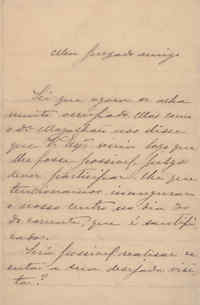 Meu prezado amigo
Sei que agora se acha
muito occupado. Mas como
o dr. Magalhães nos disse
que V. Exª viria logo que
lhe fosse possivel, julgo
dever participar-lhe que
tencionamos inaugurar
o nosso centro no dia 20
do corrente, que é santifi-
cado.
Será possivel realisar
então a sua desejada visi-
ta?